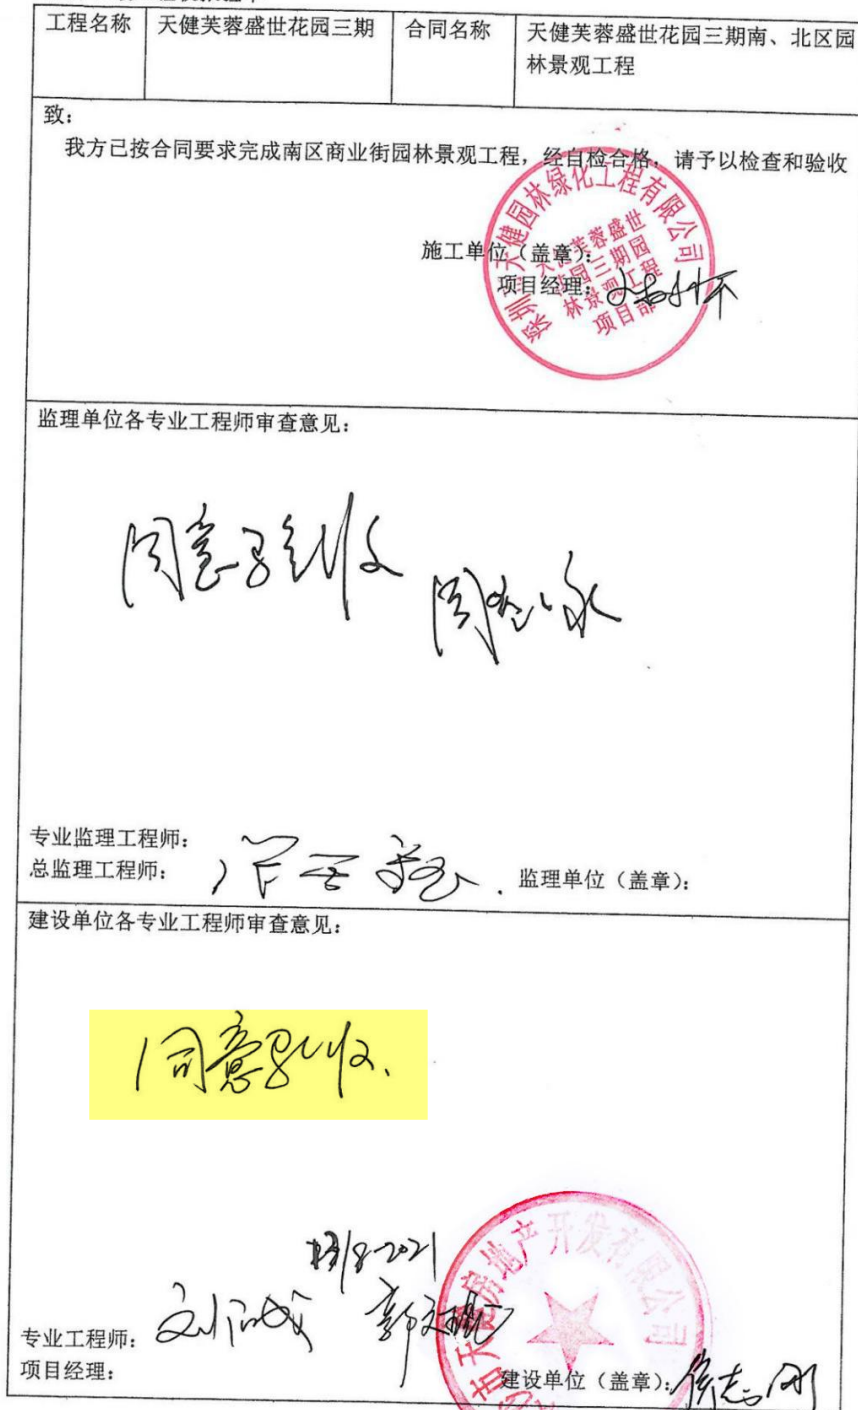 工程名称 天健芙蓉盛世花园三期 合同名称 天健芙蓉盛世花园三期南、北区园
林景观工程
致：
我方已按合同要求完成南区商业街园林景观工程，经自检合格，请予以检查和验收
施工单位（盖章）：
项目经理：
天健园林绿化工程有限公司
天健芙蓉盛世
花园三期园
林景观工程
项目部
监理单位各专业工程师审查意见：
同意验收
专业监理工程师：
总监理工程师：
监理单位（盖章）：
建设单位各专业工程师审查意见：
同意验收.
专业工程师：
项目经理：
房地产开发有限公司
建设单位（盖章）：